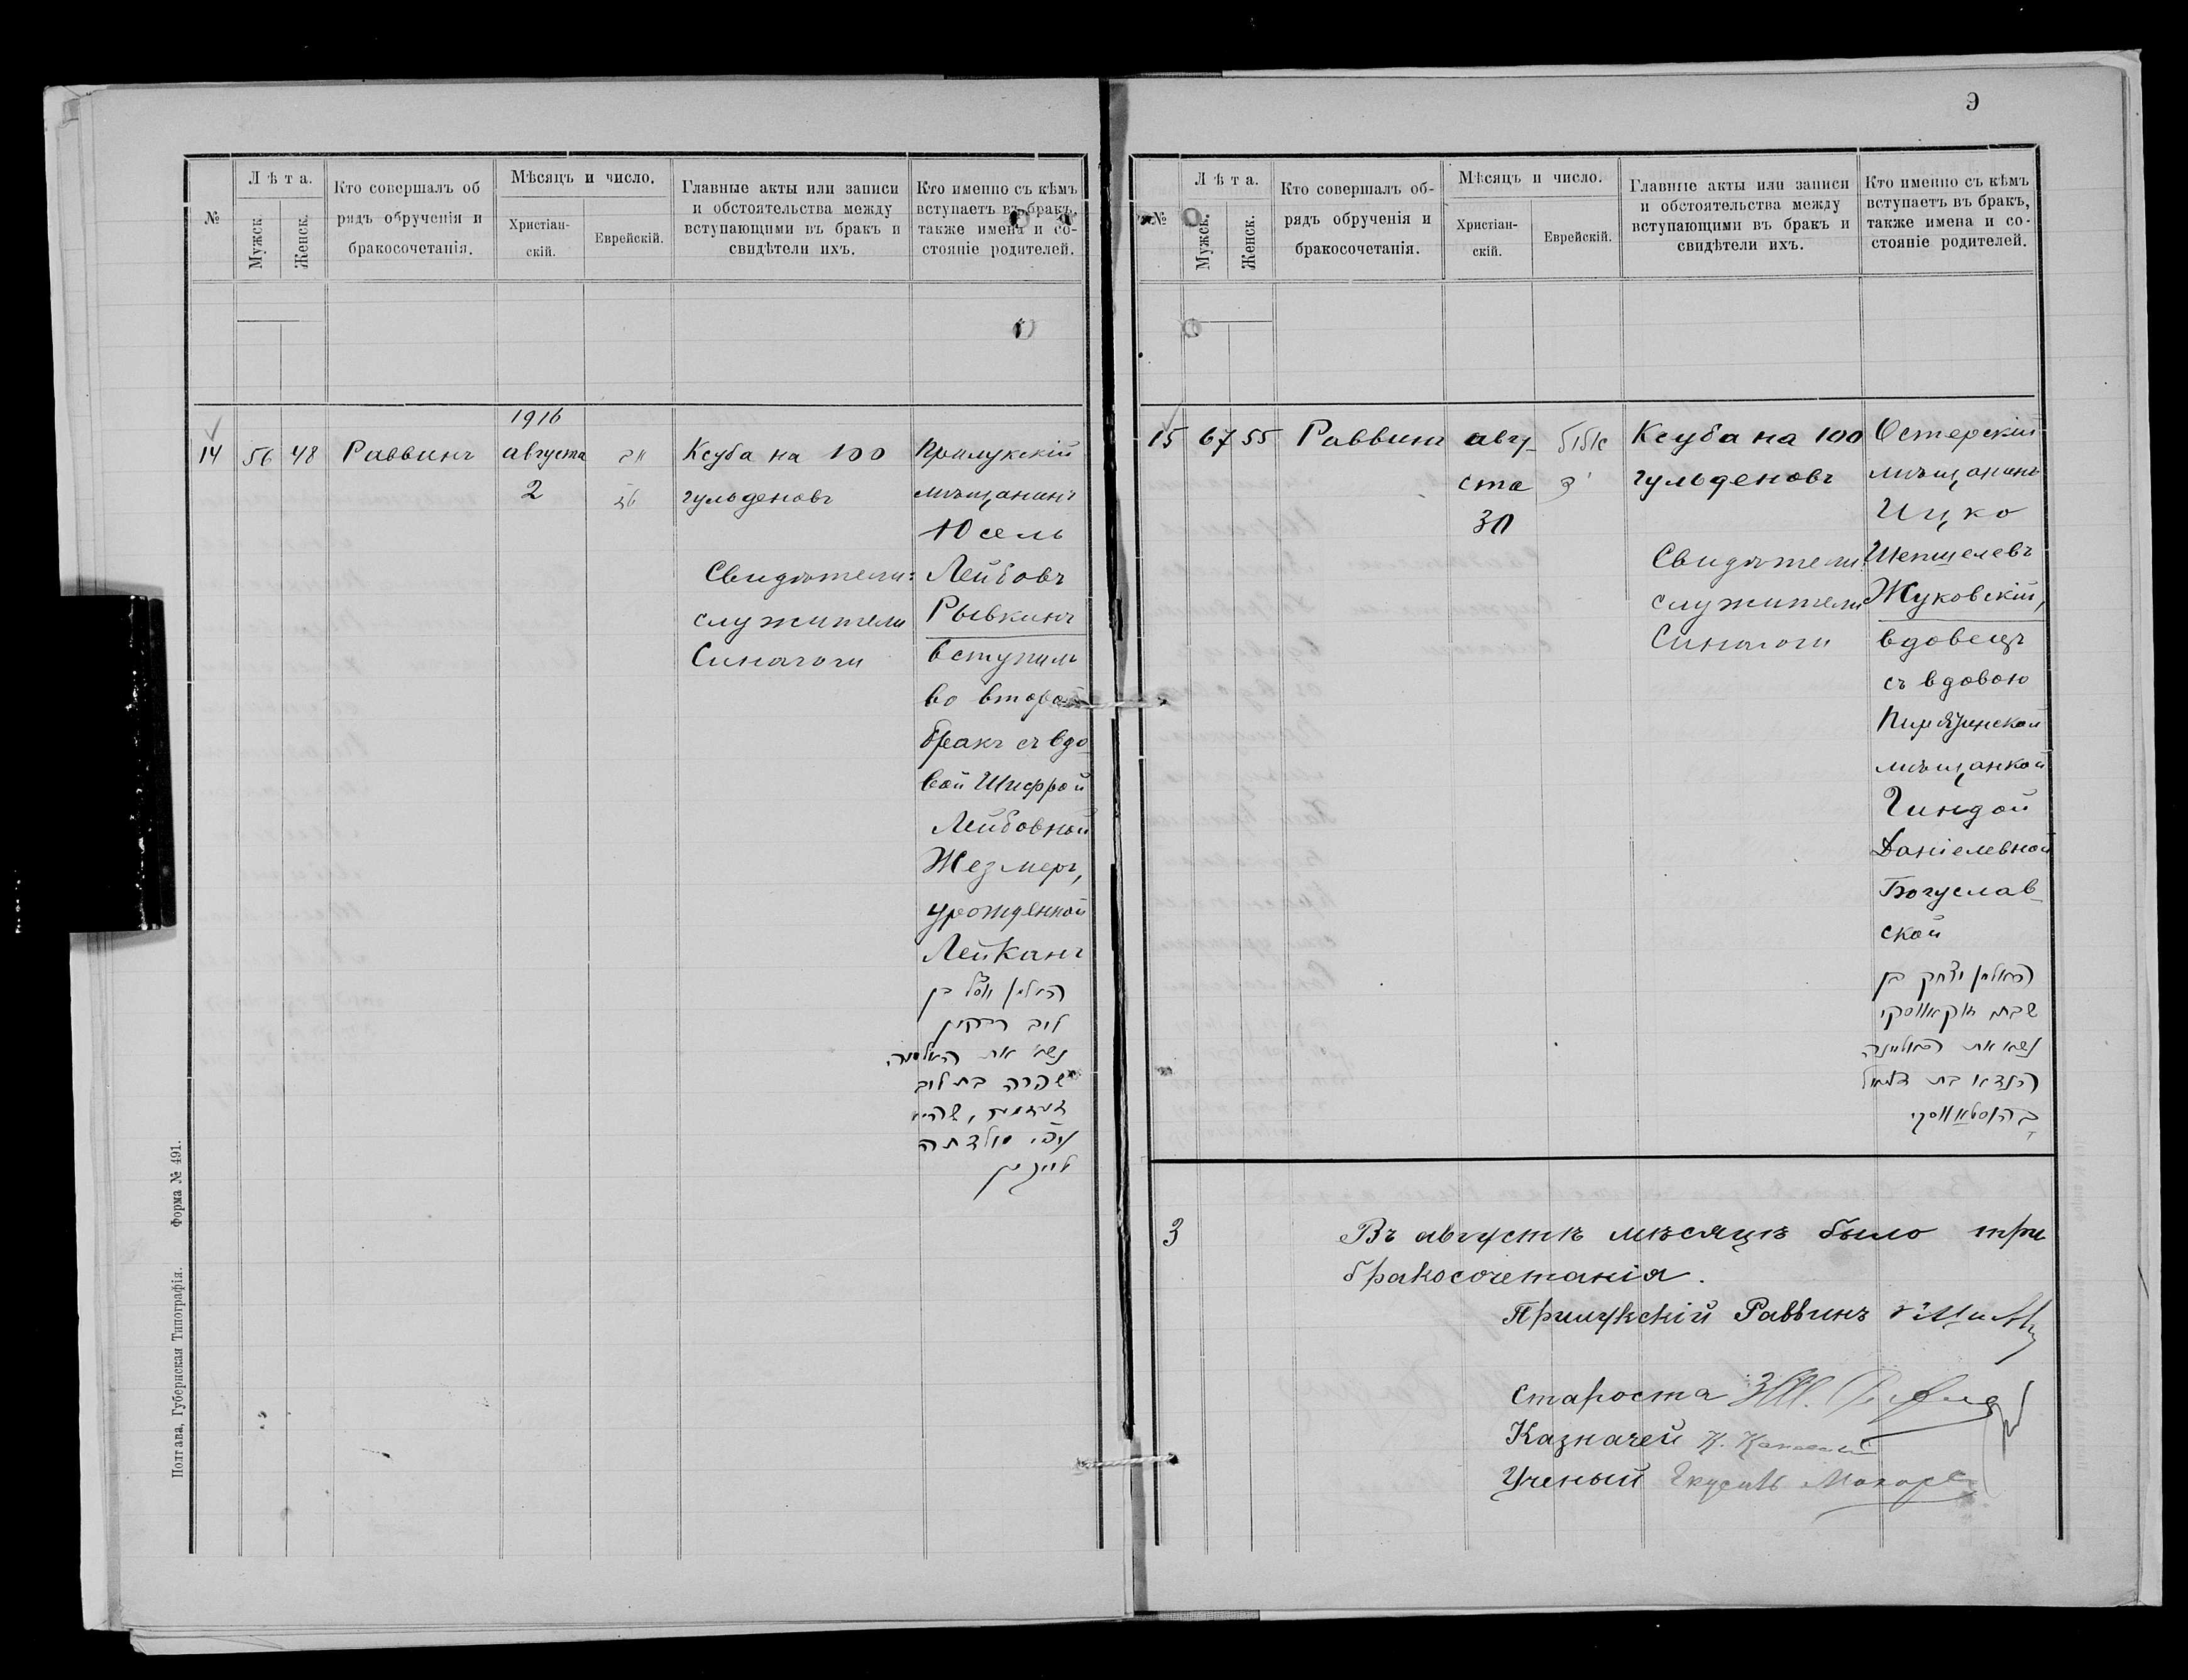 №
Лѣта.
Мужск.
Женск.
Кто совершалъ об
рядъ обрученія и
бракосочетанія.
Мѣсяцъ и число.
Христіан-
скій.
Еврейскій.
Главные акты или записи
и обстоятельства между
вступающими въ бракъ и
свидѣтели ихъ.
Кто именно съ кѣмъ
вступаетъ въ бракъ,
также имена и со-
стояніе родителей.
14
56
48
Раввинъ
1916
августа
2
Ксуба на 100
гульденовъ
Свидѣтели:
служители
Синагоги
Прилукскій
мѣщанинъ
Юсель
Лейбовъ
Рывкинъ
вступилъ
во второй
бракъ съ вдо
вой Шифрой
Лейбовной
Жезмеръ,
урожденной
Лейкинъ
האלמן יוסל בן
לייב ריבקין
נשא את האלמנה
שפרה בת לייב
Полтава, Губернская Типографія. Форма № 491.
9
№
Лѣта.
Мужск.
Женск.
Кто совершалъ об-
рядъ обрученія и
бракосочетанія.
Мѣсяцъ и число.
Христіан-
скій.
Еврейскій.
Главные акты или записи
и обстоятельства между
вступающими въ бракъ и
свидѣтели ихъ.
Кто именно съ кѣмъ
вступаетъ въ бракъ,
также имена и со-
стояніе родителей.
15
67
55
Раввинъ
авгу-
ста
30
אלול
Ксуба на 100
гульденовъ
Свидѣтели:
служители
Синагоги
Остерскій
мѣщанинъ
Ицко
Шепшелевъ
Жуковскій,
вдовецъ
съ вдовою
Пирятинской
мѣщанкой
Гиндой
Даніелевной
Богуслав-
ской
האלמן יצחק בן
נשא את האלמנה
3
Въ августѣ мѣсяцѣ было три
бракосочетанія.
Прилукскій Раввинъ
Староста
Казначей
Ученый